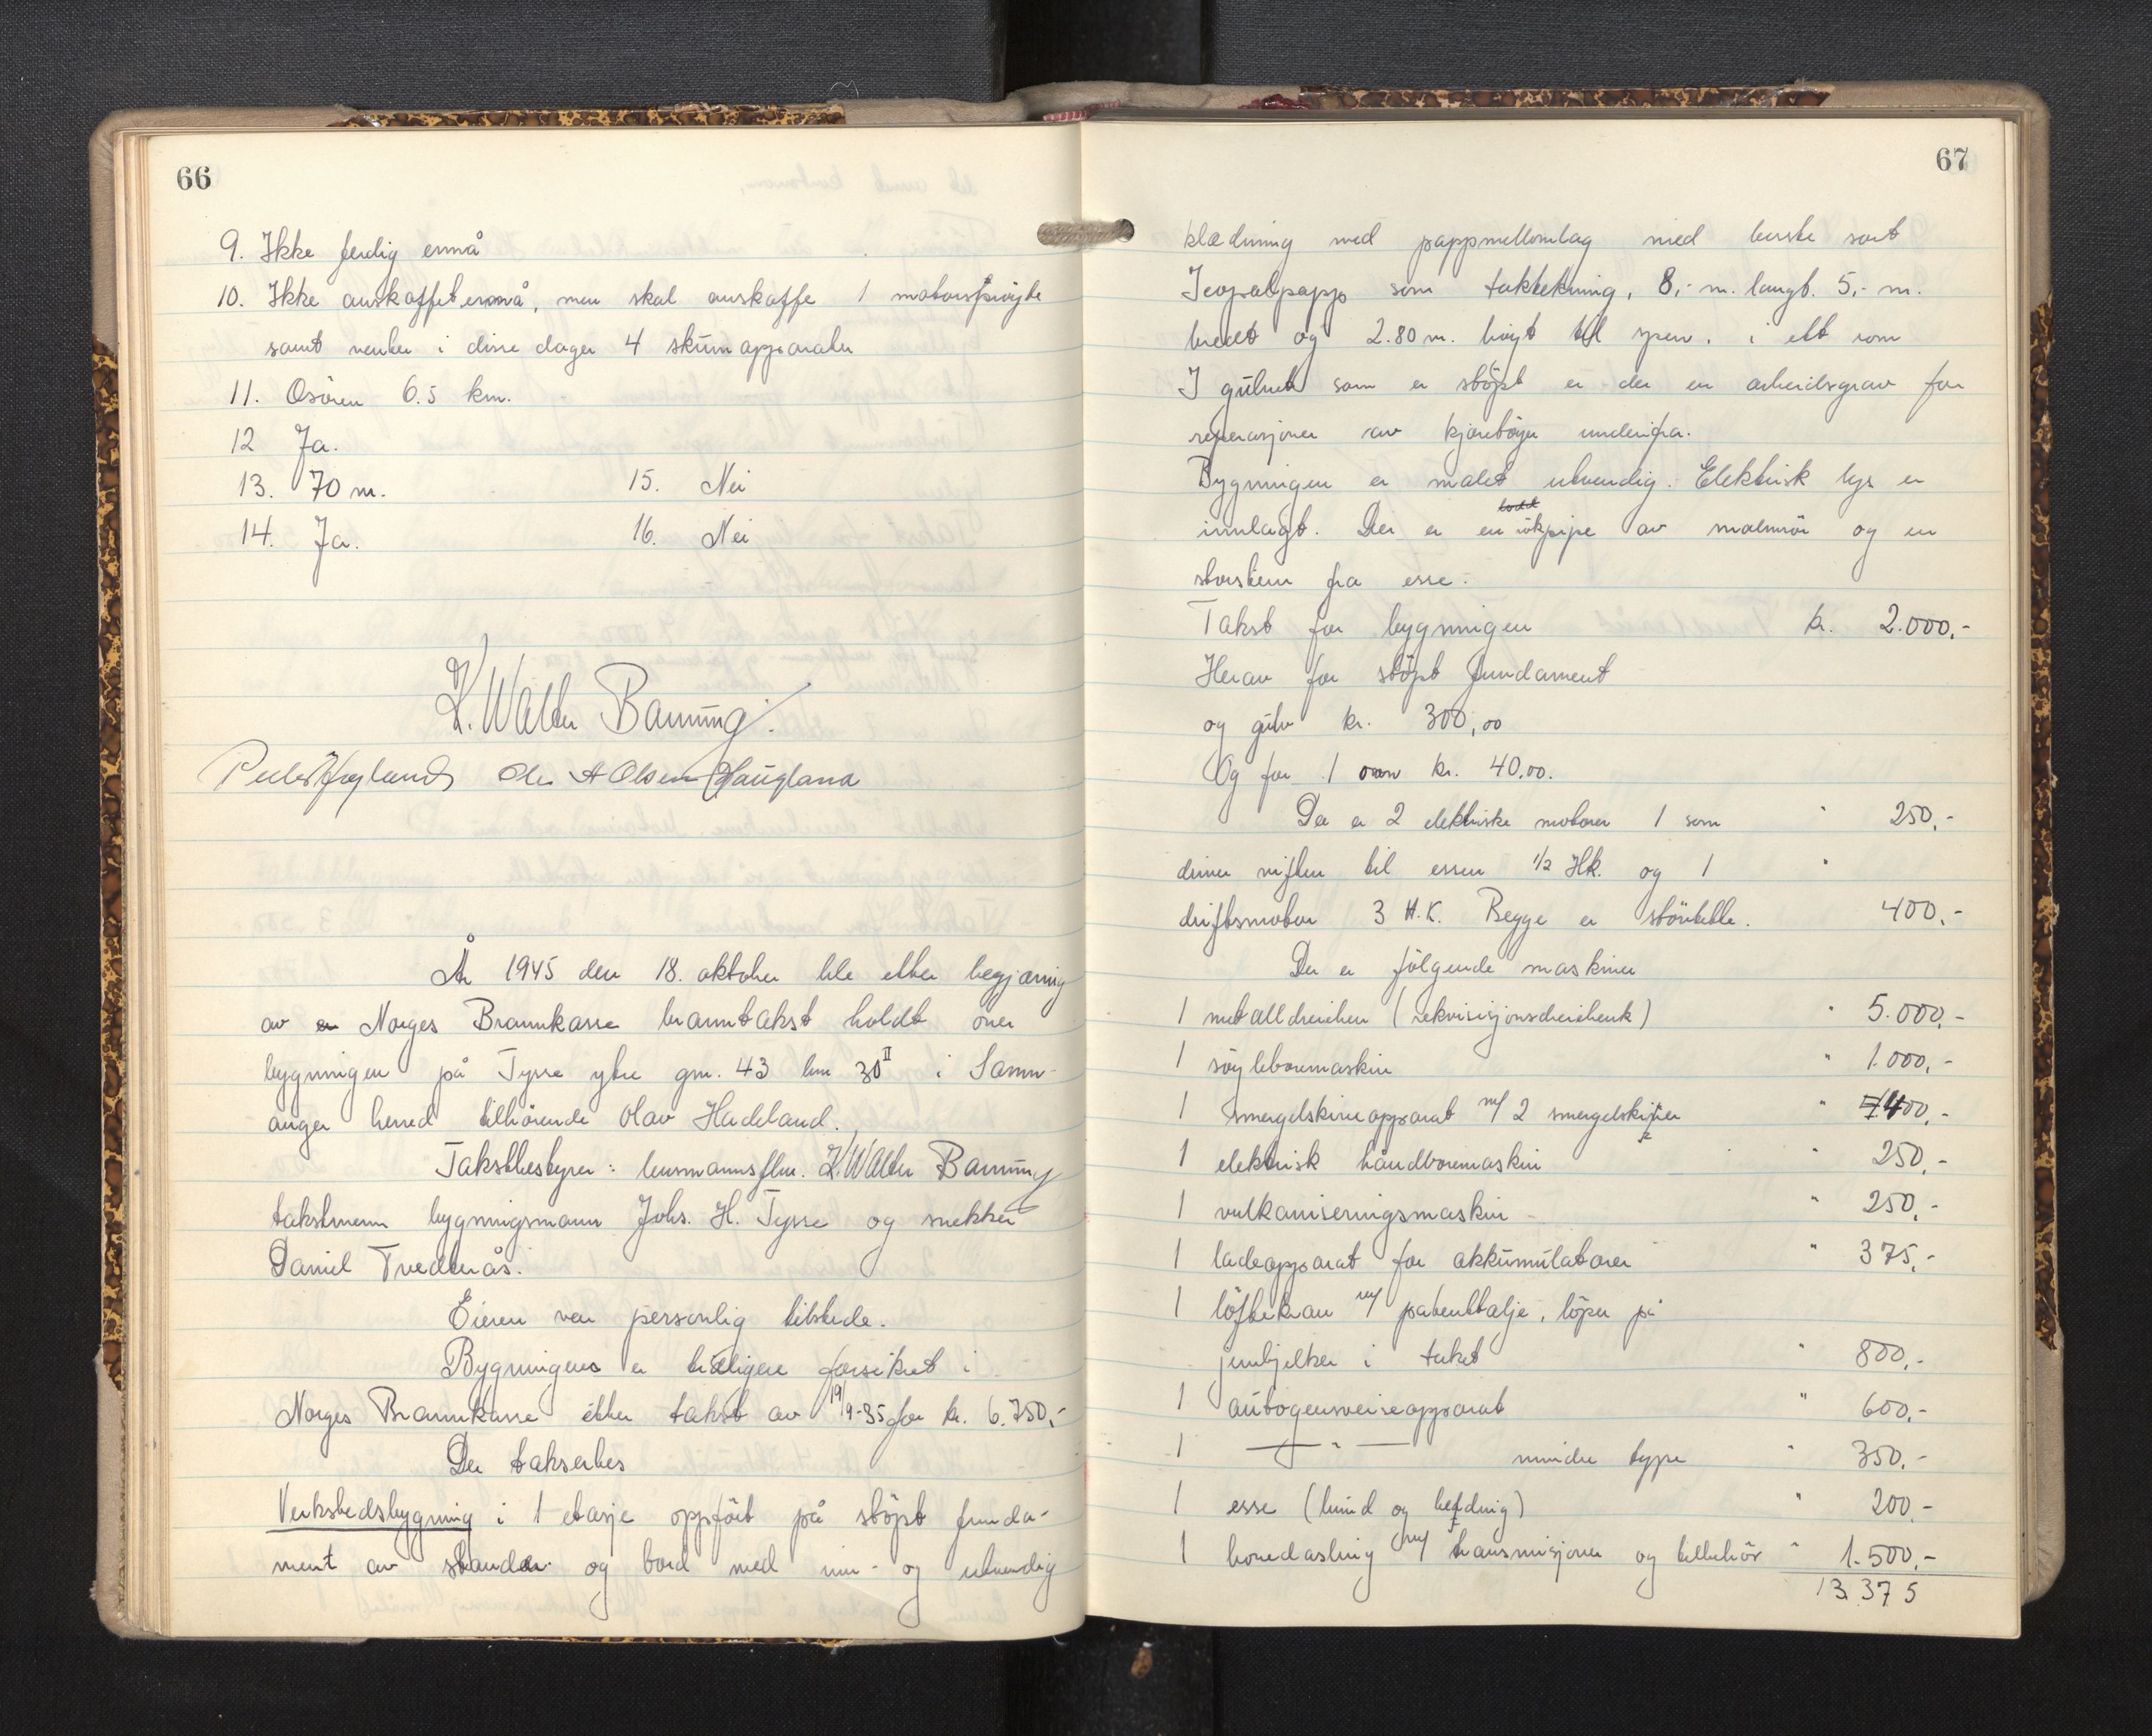 66
9. Ikke ferdig ennå
10. Ikke anskaffet ennå, men skal anskaffe 1 motorsprøyte
samt venter i disse dager 4 skumapparater
11. Osøren 6.5 km.
12 Ja.
13. 70 m. 15. Nei
14. Ja. 16. Nei
K. Walter Banning.
Peder Høyland Ole A Olsen Haugland
År 1945 den 18. oktober ble etter begjæring
av Norges Brannkasse branntakst holdt over
bygningen på Tysse ytre gnr. 43 bnr 30 II i Samn-
anger herred tilhørende Olav Hadeland.
Takstbestyrer: lensmannsflm. K. Walter Banning
takstmenn bygningsmann Johs. H. Tysse og snekker
Daniel Tvedterås.
Eieren var personlig tilstede.
Bygningene er tidligere forsikret i
Norges Brannkasse etter takst av 19/9-35 for kr. 6.750,-
Der takseres
Verkstedsbygning i 1 etasje oppført på støpt funda-
ment av stander og bord med inn- og utvendig
67
klædning med pappmellomlag med beste sort
Icopalpapp som taktekning, 8,- m. langt. 5,- m.
bredt og 2.80 m. høgt til sperr. i ett rom
I gulvet som er støpt er der en arbeidsgrav for
reperasjoner av kjøretøyer underifra.
Bygningen er malet utvendig. Elektrisk lys er
innlagt. Der er en røkpipe av malmrør og en
skorsten fra esse.
Takst for bygningen kr. 2.000,-
Herav for støpt fundament
og gulv kr. 300,00
Og for 1 ovn kr. 40,00.
Der er 2 elektriske motorer 1 som " 250,-
driver viften til essen 1/2 Hk. og 1 "
driftsmotor 3 H.K. Begge er støvtette. 400,-
Der er følgende maskiner
1 metalldreiher (rekvisisjonsdreihenk) " 5.000,-
1 søyleboremaskin " 1.000,-
1 smergelskiveapparat m/ 2 smergelskiver " 400,-
1 elektrisk håndboremaskin " 250,-
1 vulkaniseringsmaskin " 250,-
1 ladeapparat for akkumulatorer " 375,-
1 løftekran m/ patenttalje, løper på
jernbjelker i taket " 800,-
1 autogensveiseapparat " 600,-
1 — " — mindre type " 350,-
1 esse ( og ) " 200,-
1 hovedasling m/ transmisjoner og tilbehør " 1.500,-
13.375